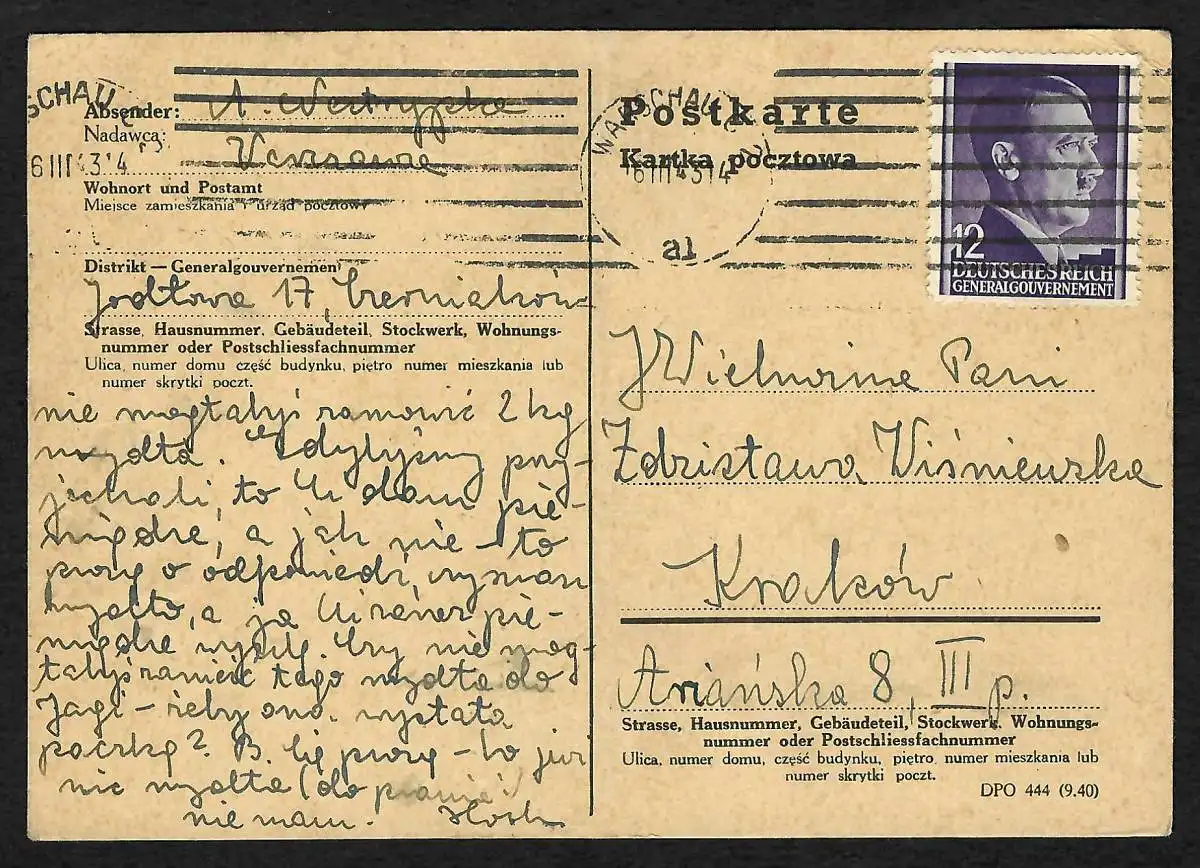 SCHAU C
6 III 43 14
Absender:
Nadawca:
A.
Warszawa
Wohnort und Postamt
Miejsce zamieszkania i urząd pocztowy
Distrikt — Generalgouvernement
Jodłowa 17, Czerniaków
Strasse, Hausnummer, Gebäudeteil, Stockwerk, Wohnungs-
nummer oder Postschliessfachnummer
Ulica, numer domu część budynku, piętro numer mieszkania lub
numer skrytki poczt.
nie mogłabyś zamówić 2 kg
mydła. Gdybyśmy przy-
jechali, to Ci dam pie-
niądze, a jak nie – to
proszę o odpowiedź,
mydło, a ja Ci zaraz pie-
niądze wyślę. Czy nie mog-
łabyś zanieść tego mydła do
Jagi – żeby ona wysłała
paczkę? B. Cię proszę – bo już
nic mydła (do prania)
nie mam.
Postkarte
Kartka pocztowa
WARSCHAU C
6 III 43 14
al
12
DEUTSCHES REICH
GENERALGOUVERNEMENT
JWielmożna Pani
Zdzisława Wiśniewska
Kraków
Ariańska 8, III p.
Strasse, Hausnummer, Gebäudeteil, Stockwerk, Wohnungs-
nummer oder Postschliessfachnummer
Ulica, numer domu, część budynku, piętro, numer mieszkania lub
numer skrytki poczt.
DPO 444 (9.40)